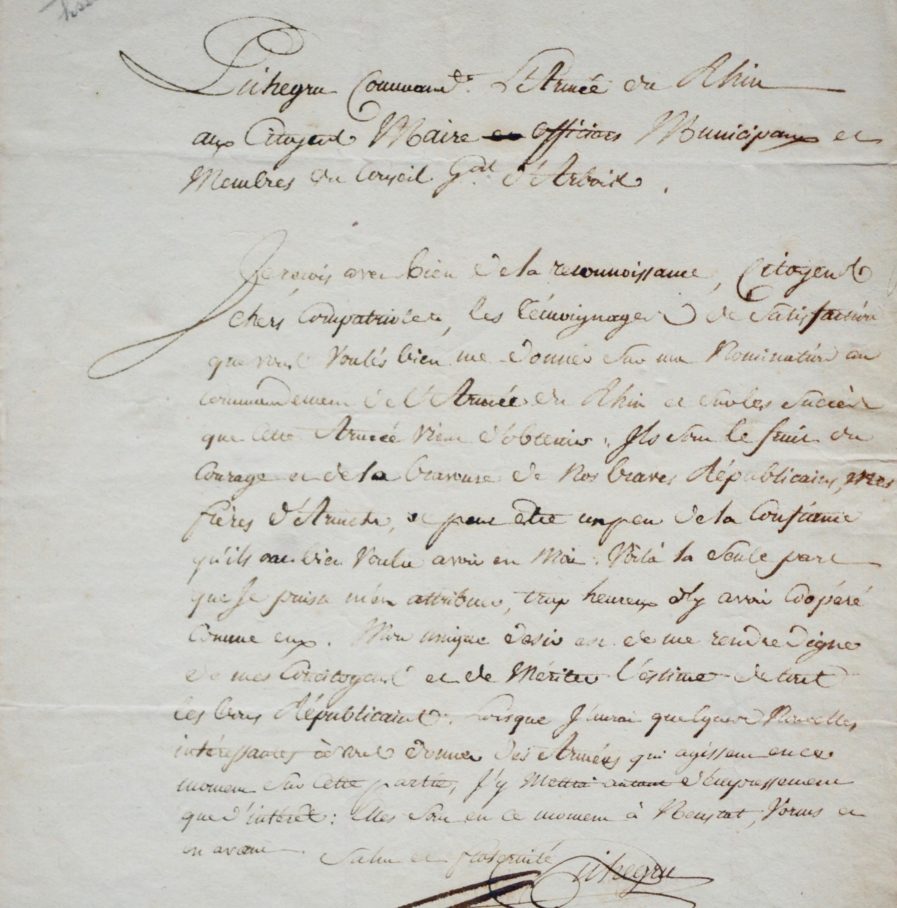 Pichegru Command.^r L'Armée du Rhin
aux Citoyens Maire et officiers Municipaux et
Membres du Conseil G^al d'Arbois.
Je reçois avec bien de la reconnoissance, Citoyens
chérs Compatriotes, les témoignages de Satisfaction
que vous voulés bien me donner sur ma Nomination au
commandement de l'Armée du Rhin et sur les Succès
que cette Armée vient d'obtenir. Ils sont le fruit du
Courage et de la bravoure de Nos braves Républicains, mes
frères d'Armes, et peut être un peu de la Confiance
qu'ils ont bien voulu avoir en Moi. Voilà la Seule part
que Je puisse m'en attribuer, trop heureux d'y avoir Coopéré
Comme eux. Mon unique désir est de me rendre digne
de mes Concitoyens et de Mériter l'estime de tous
les bons Républicains. Lorsque J'aurai quelques Nouvelles
intéressantes à vous donner des Armées qui agissent en ce
moment sur cette partie, J'y Mettrai autant d'empressement
que d'intérêt : elles sont en ce moment à Neustat, Vorms et
en avant. Salut et fraternité
Pichegru